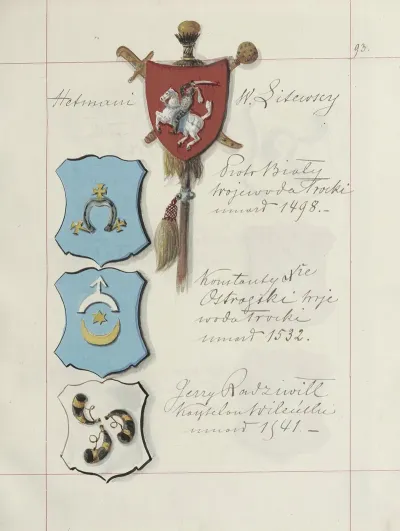 93.
Hetmani W. Litewscy
Piotr Biały
wojewoda Trocki
umarł 1498. –
Konstanty Xże
Ostrogski woje
woda Trocki
umarł 1532.
Jerzy Radziwiłł
Kasztelan Wileński
umarł 1541 –